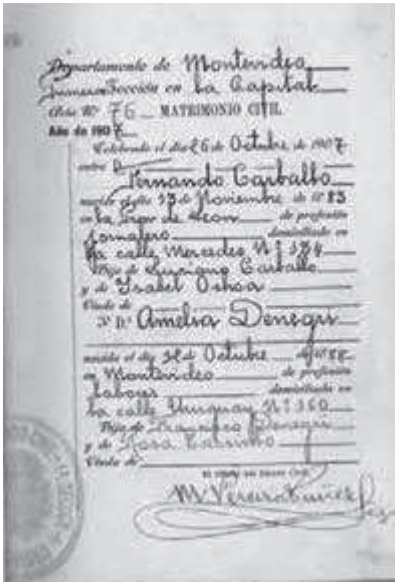 Departamento de Montevideo
primera Sección en La Capital
Acta Nº 76 MATRIMONIO CIVIL
Año de 1907
Celebrado el día 26 de Octubre de 1907
entre D
Fernando Carballo
nacido el día 13 de Noviembre de 1883
en de Leon de profesión
Jornalero domiciliado en
la calle Mercedes Nº
Hijo de Carballo
y de Isabel Ochoa
Viudo de
Y Dª Amelia Denegri
nacida el día de Octubre de 1888
en Montevideo de profesión
Labores domiciliada en
la calle Uruguay Nº 360
Hija de Francisco Denegri
y de Rosa
Viuda de
El Oficial del Estado Civil
M. Pereira Nuñez